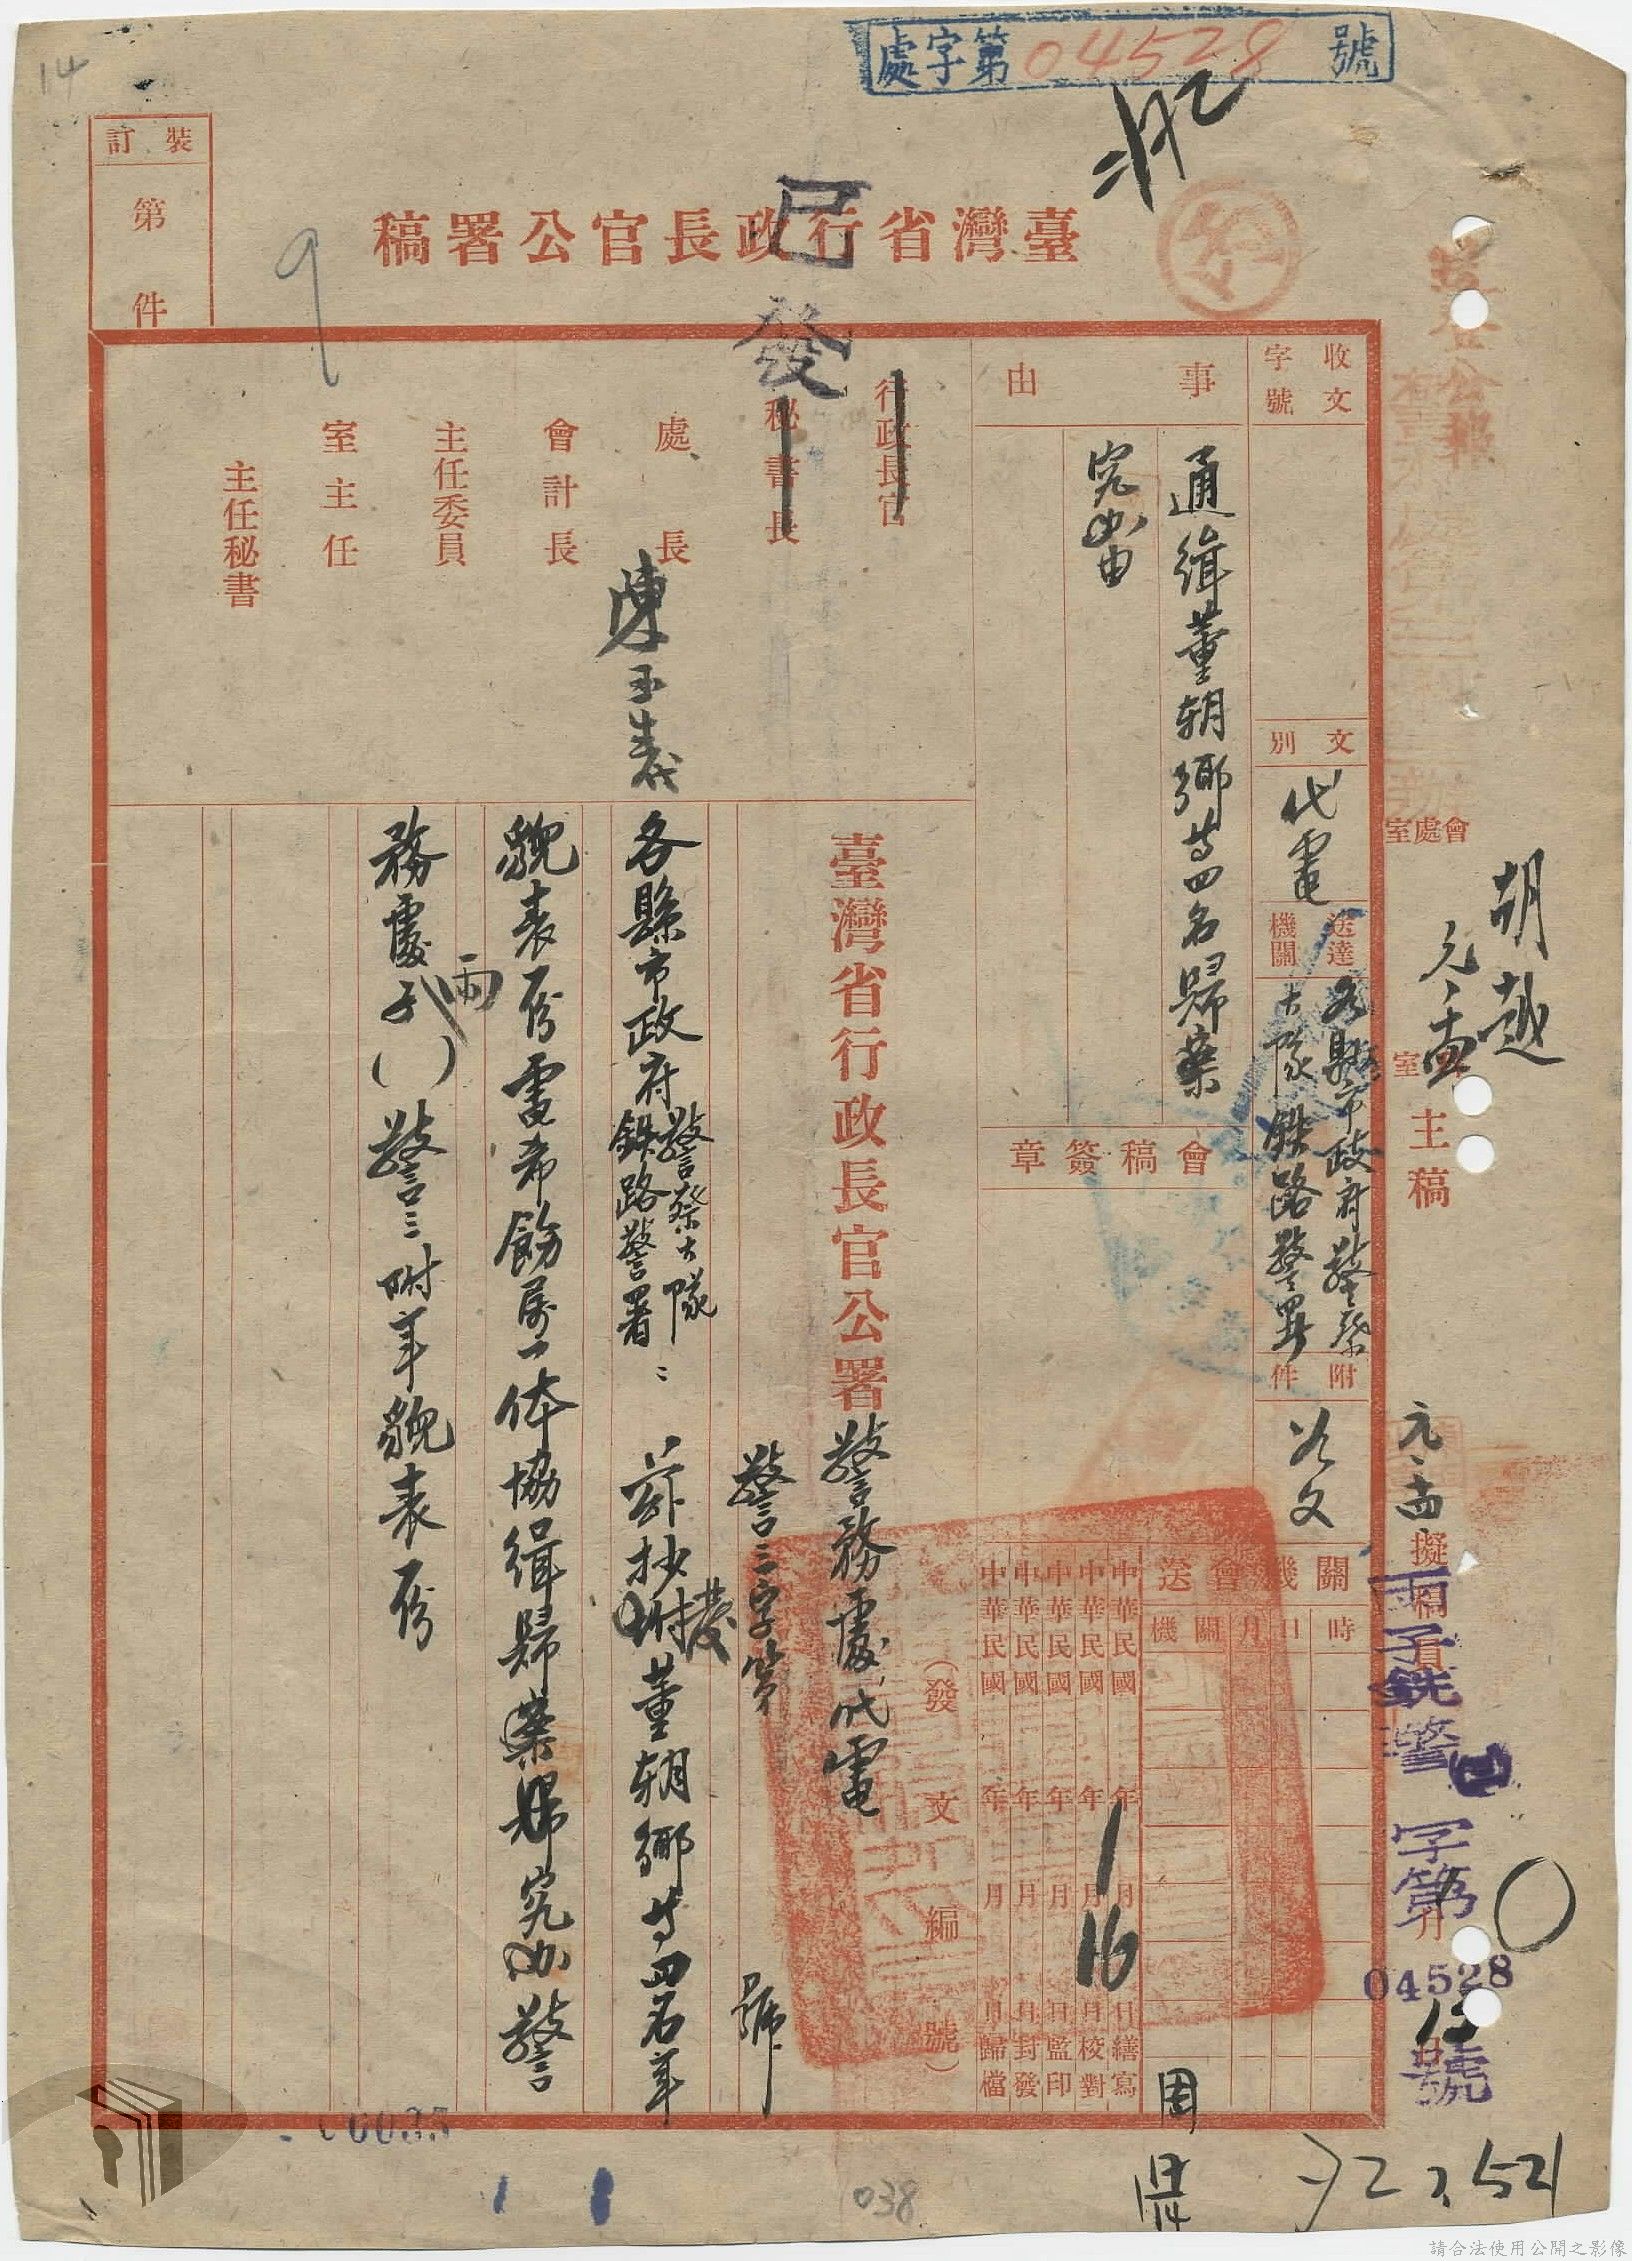 處字第04528號
14
裝訂
第
件
9
臺灣省行政長官公署稿
已發
收文字號
文別
代電
送達機關
各縣市政府警察
大隊鐵路警署
附件
如文
事由
通緝董朝鄉等四名歸案
究办由
會稿簽章
關機會送
時日月關機
中華民國年月日繕寫
中華民國年月日校對
1
16
中華民國年月日監印
中華民國年月日封發
中華民國年月日歸檔
(發文編號)
行政長官
秘書長
處長
陳玉義
會計長
主任委員
室主任
主任秘書
臺灣省行政長官公署警務處代電
警三字第 號
各縣市政府警察大隊鐵路警署：茲抄發董朝鄉等四名年
貌表一份電希飭屬一体協緝歸案究办警
務處子( )警三附年貌表一份
丙
會處室
胡越
室
主稿
擬稿員
丙子銑警
字第
04528
號
周
0035
038
請合法使用公開之影像